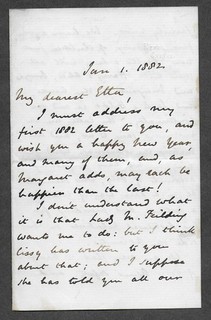 Jan 1. 1882
My dearest Etta!
I must address my
first 1882 letter to you, and
wish you a happy New Year,
and many of them, and, as
Margaret adds, may each be
happier than the last!
I don't understand what
it is that Lady M. Feilding
wants me to do: but I think
Lissy has written to you
about that; and I suppose
she has told you all our